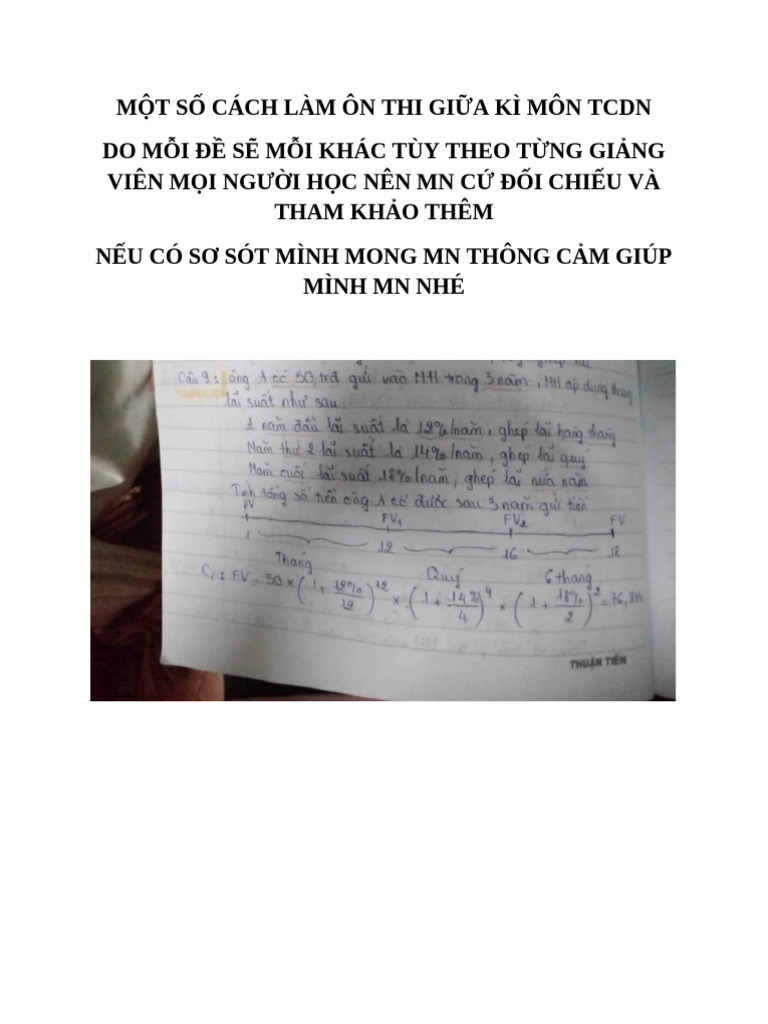 MỘT SỐ CÁCH LÀM ÔN THI GIỮA KÌ MÔN TCDN
DO MỖI ĐỀ SẼ MỖI KHÁC TÙY THEO TỪNG GIẢNG
VIÊN MỌI NGƯỜI HỌC NÊN MN CỨ ĐỐI CHIẾU VÀ
THAM KHẢO THÊM
NẾU CÓ SƠ SÓT MÌNH MONG MN THÔNG CẢM GIÚP
MÌNH MN NHÉ
Câu 9: ông A có 50 trđ gửi vào NH trong 3 năm, NH áp dụng thang
lãi suất như sau:
1 năm đầu lãi suất là 12%/năm, ghép lãi hàng tháng
Năm thứ 2 lãi suất là 14%/năm, ghép lãi quý
Năm cuối lãi suất 18%/năm, ghép lãi nửa năm
Tính tổng số tiền ông A có được sau 3 năm gửi tiền
PV FV1 FV2 FV
1 12 16 18
Tháng Quý 6 tháng
FV = 50 × (1 + 12%/12)^12 × (1 + 14%/4)^4 × (1 + 18%/2)^2 =
THUẬN TIẾN